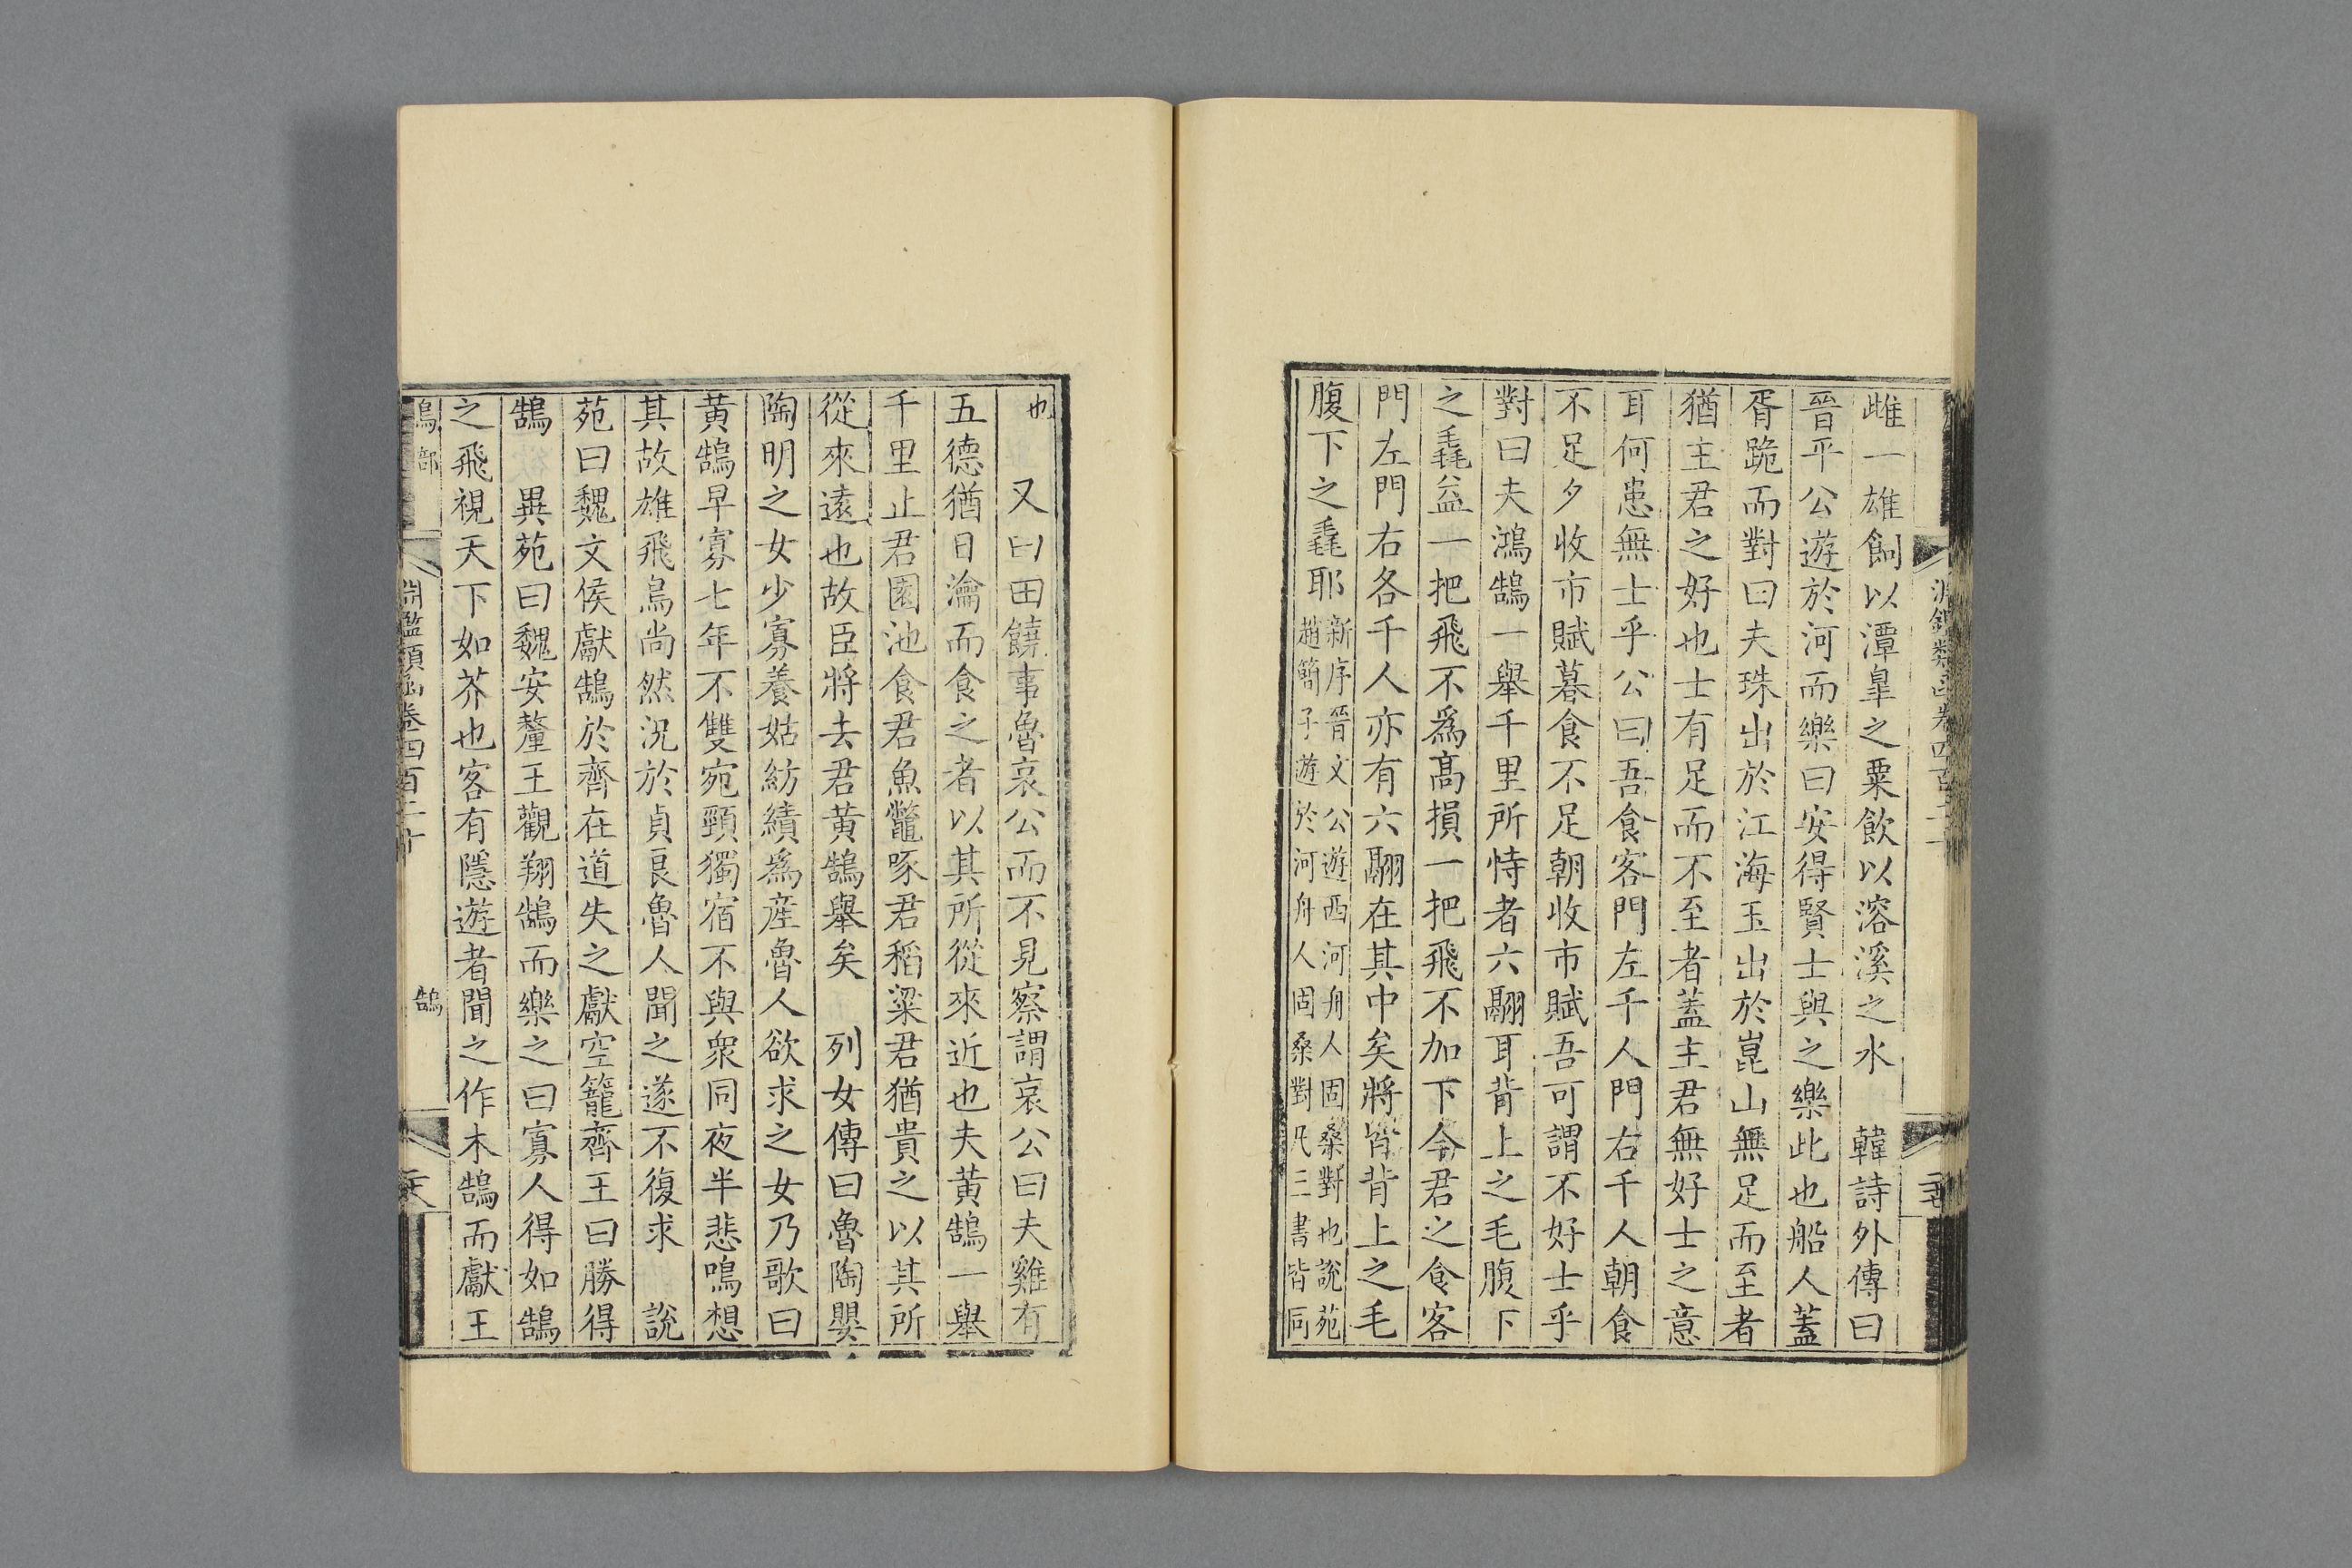 雌一雄飼以潭皐之粟飲以溶溪之水　韓詩外傳曰
晉平公遊於河而樂曰安得賢士與之樂此也船人蓋
胥跪而對曰夫珠出於江海玉出於崑山無足而至者
猶主君之好也士有足而不至者蓋主君無好士之意
耳何患無士乎公曰吾食客門左千人門右千人朝食
不足夕收市賦暮食不足朝收市賦吾可謂不好士乎
對曰夫鴻鵠一舉千里所恃者六翮耳背上之毛腹下
之毳益一把飛不爲高損一把飛不加下今君之食客
門左門右各千人亦有六翮在其中矣將皆背上之毛
腹下之毳耶
新序晉文公遊西河舟人固桑對也說苑
趙簡子遊於河舟人固桑對凡三書皆同
也　又曰田饒事魯哀公而不見察謂哀公曰夫雞有
五德猶日瀹而食之者以其所從來近也夫黃鵠一舉
千里止君園池食君魚鼈啄君稻粱君猶貴之以其所
從來遠也故臣將去君黃鵠舉矣　列女傳曰魯陶嬰
陶明之女少寡養姑紡績爲產魯人欲求之女乃歌曰
黃鵠早寡七年不雙宛頸獨宿不與衆同夜半悲鳴想
其故雄飛鳥尚然況於貞良魯人聞之遂不復求　說
苑曰魏文侯獻鵠於齊在道失之獻空籠齊王曰勝得
鵠　異苑曰魏安釐王觀翔鵠而樂之曰寡人得如鵠
之飛視天下如芥也客有隱遊者聞之作木鵠而獻王
鳥部　淵鑑類函卷四百二十　鵠　二六